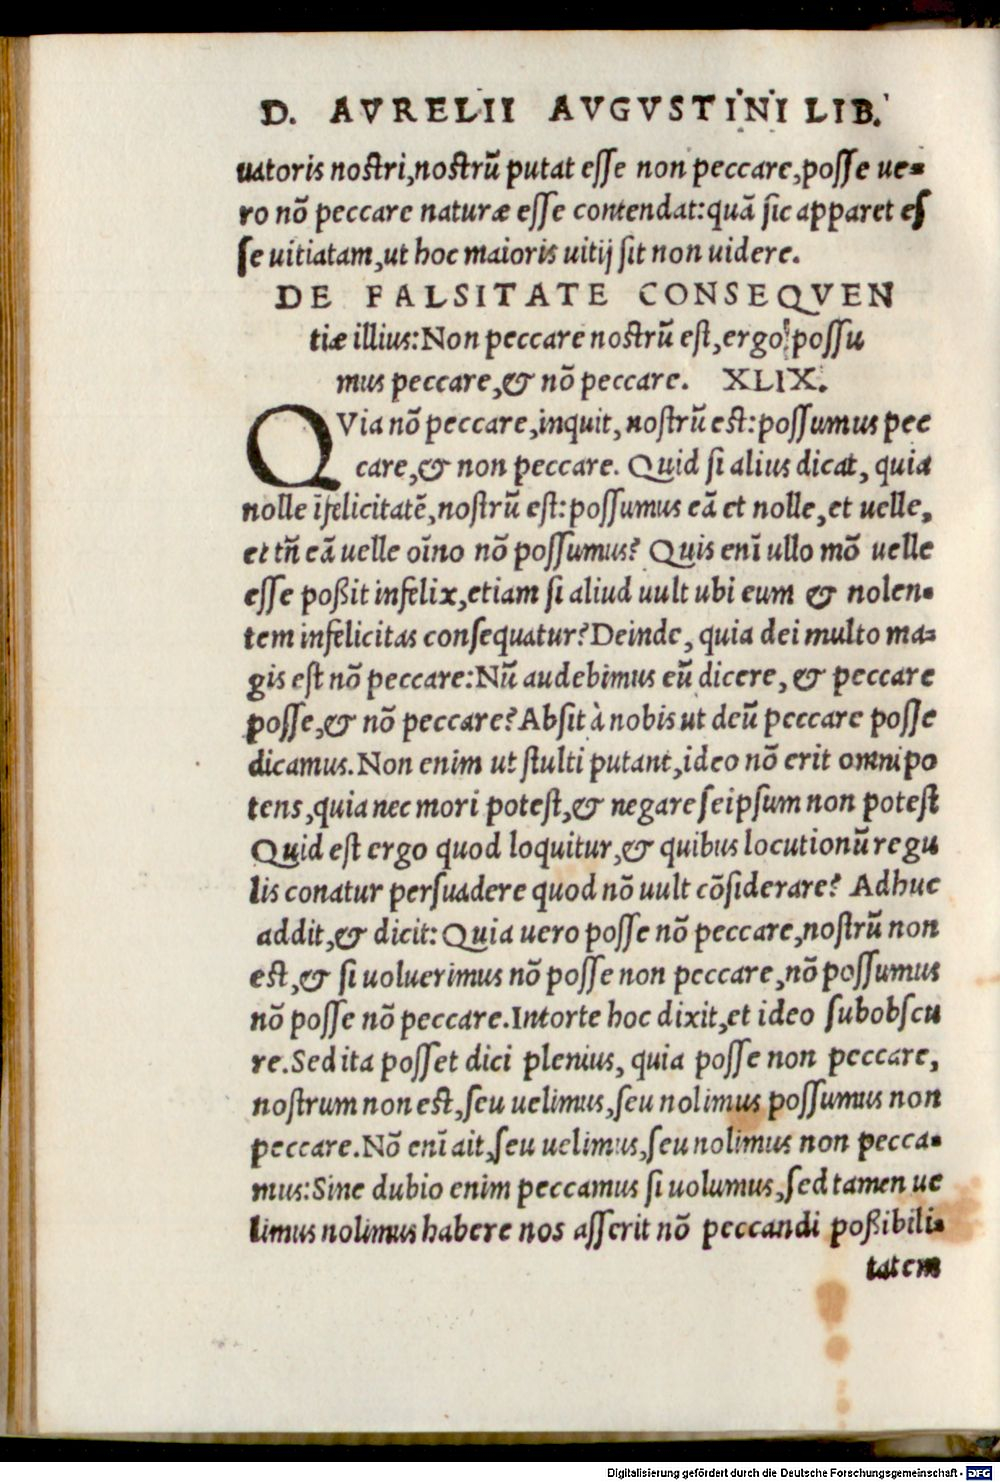 D. AVRELII AVGVSTINI LIB.
uatoris nostri,nostrũ putat esse non peccare,posse ue-
ro nõ peccare naturæ esse contendat:quã sic apparet es
se uitiatam,ut hoc maioris uitij sit non uidere.
DE FALSITATE CONSEQVEN
tiæ illius:Non peccare nostrũ est,ergo possu
mus peccare,& nõ peccare. XLIX.
QVia nõ peccare,inquit,nostrũ est:possumus pec
care,& non peccare. Quid si alius dicat, quia
nolle ĩfelicitatẽ,nostrũ est:possumus eã et nolle,et uelle,
et tñ eã uelle oĩno nõ possumus? Quis enĩ ullo mõ uelle
esse poßit infelix,etiam si aliud uult ubi eum & nolen-
tem infelicitas consequatur?Deinde, quia dei multo ma-
gis est nõ peccare:Nũ audebimus eũ dicere, & peccare
posse,& nõ peccare?Absit à nobis ut deũ peccare posse
dicamus.Non enim ut stulti putant,ideo nõ erit omnipo
tens,quia nec mori potest,& negare seipsum non potest
Quid est ergo quod loquitur,& quibus locutionũ regu
lis conatur persuadere quod nõ uult cõsiderare? Adhuc
addit,& dicit:Quia uero posse nõ peccare,nostrũ non
est,& si uoluerimus nõ posse non peccare,nõ possumus
nõ posse nõ peccare.Intorte hoc dixit,et ideo subobscu
re.Sed ita posset dici plenius, quia posse non peccare,
nostrum non est,seu uelimus,seu nolimus possumus non
peccare.Nõ enĩ ait,seu uelimus,seu nolimus non pecca-
mus:Sine dubio enim peccamus si uolumus,sed tamen ue
limus nolimus habere nos asserit nõ peccandi poßibili-
tatem
Digitalisierung gefördert durch die Deutsche Forschungsgemeinschaft - DFG